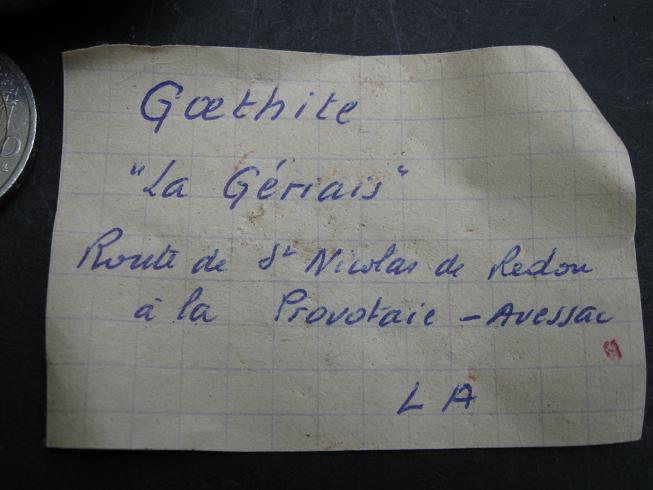 Gœthite
"La Gériais"
Route de St Nicolas de Redon
à la Provotaie - Avessac
L A